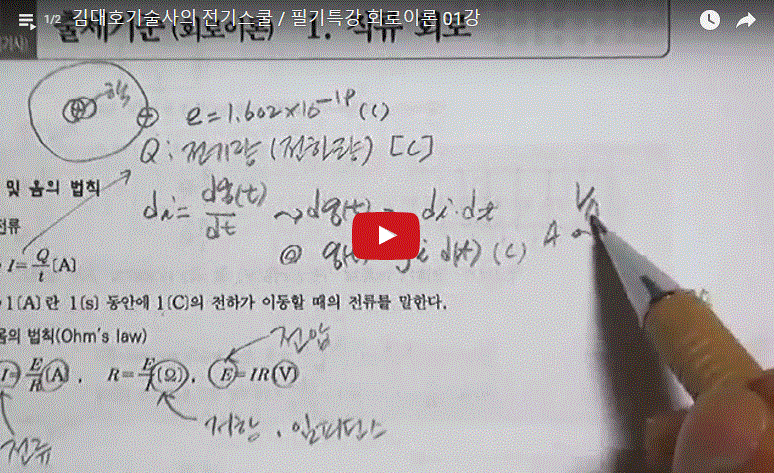 1/2 김대호기술사의 전기스쿨 / 필기특강 회로이론 01강
출제기준 (회로이론) 1. 직류 회로
핵
⊕ e = 1.602×10⁻¹⁹ (C)
Q : 전기량 (전하량) [C]
및 옴의 법칙
di = dq(t)/dt → dq(t) = di·dt
전류
q(t) = ∫i d(t) (C)
A
I = Q/t [A]
1[A]란 1[s] 동안에 1[C]의 전하가 이동할 때의 전류를 말한다.
옴의 법칙(Ohm's law)
전압
I = E/R [A], R = E/I [Ω], E = IR [V]
저항, 임피던스
전류